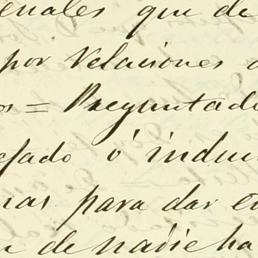 enales que de
por relaciones
os = Preguntado
efado ó indu
nas para dar
de nadie ha